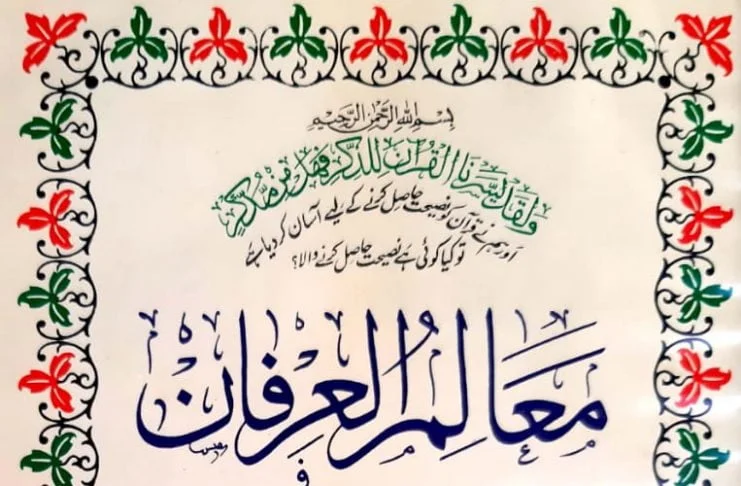 بِسْمِ اللّٰهِ الرَّحْمٰنِ الرَّحِيْمِ
وَلَقَدْ يَسَّرْنَا الْقُرْآنَ لِلذِّكْرِ فَهَلْ مِنْ مُّدَّكِرٍ
اور ہم نے قرآن کو نصیحت حاصل کرنے کے لیے آسان کر دیا ہے
تو کیا کوئی ہے نصیحت حاصل کرنے والا؟
مَعَالِمُ الْعِرْفَان